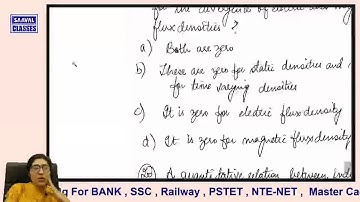 SAAVAL
CLASSES
for the divergence of electric and
flux densities ?
a) Both are zero
b) These are zero for static densities and
for time varying densities
c) It is zero for electric flux density
d) It is zero for magnetic flux density
A quantitative relation between
g For BANK , SSC , Railway , PSTET , NTE-NET , Master Ca